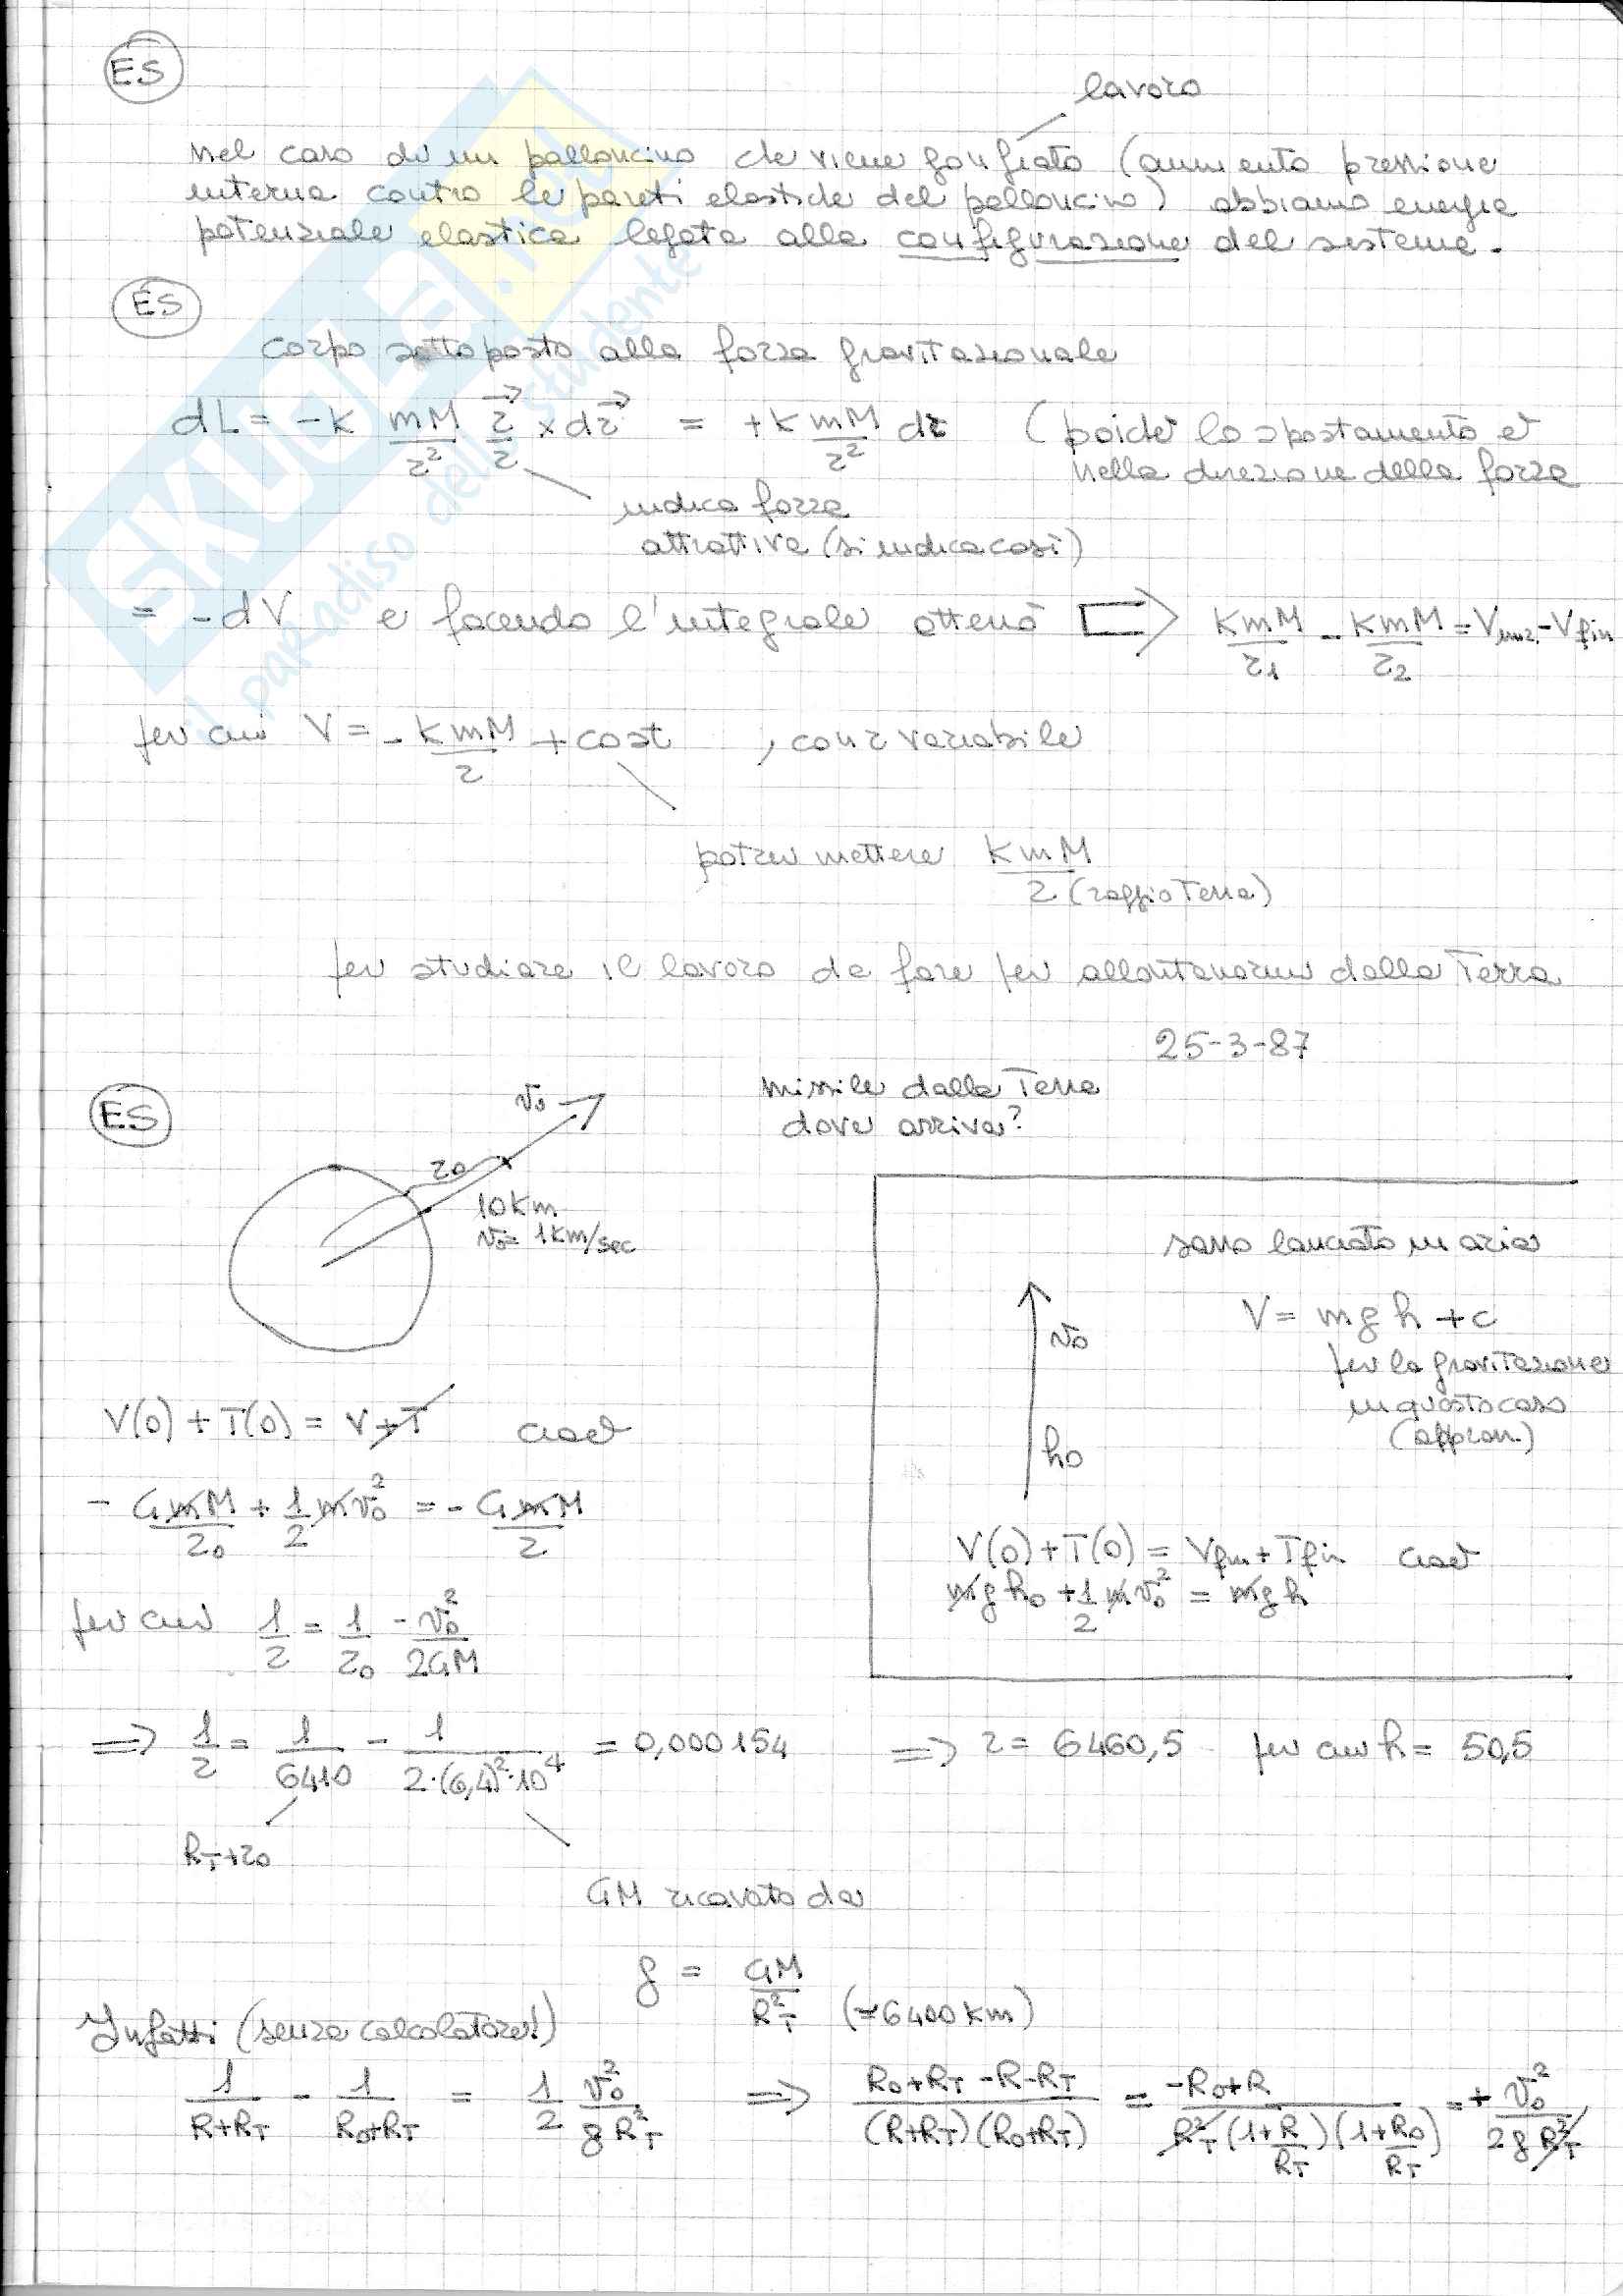 ES
lavoro
nel caso di un palloncino che viene gonfiato (aumento pressione
interna contro le pareti elastiche del palloncino) abbiamo energia
potenziale elastica legata alla configurazione del sistema.
ES
corpo sottoposto alla forza gravitazionale
dL = -K mM/r² r⃗/r × dr⃗ = +K mM/r² dr (poiché lo spostamento è
nella direzione della forza
indica forza
attrattiva (si indica così)
= -dV e facendo l'integrale otterrò ⇒ KmM/r₁ - KmM/r₂ = Vinz. - Vfin
per cui V = -KmM/r + cost , con r variabile
potrei mettere KmM/r (raggio Terra)
per studiare il lavoro da fare per allontanarmi dalla Terra
25-3-87
ES
v₀
missile dalla Terra
dove arriva?
r₀
10 Km
v₀ = 1 Km/sec
sasso lanciato in aria
V = mgh + c
per la gravitazione
in questo caso
(appross.)
v₀
h₀
V(0) + T(0) = V + T cioè
- GmM/r₀ + 1/2 mv₀² = - GmM/r
V(0) + T(0) = Vfin + Tfin cioè
mgh₀ + 1/2 mv₀² = mgh
per cui 1/r = 1/r₀ - v₀²/2GM
⇒ 1/r = 1/6410 - 1/2·(6,4)²·10⁴ = 0,000154 ⇒ r = 6460,5 per cui h = 50,5
R_T + r₀
GM ricavato da
g = GM/R_T² (≈6400 km)
Infatti (senza calcolatore!)
1/R+R_T - 1/R₀+R_T = 1/2 v₀²/gR_T² ⇒ R₀+R_T-R-R_T/(R+R_T)(R₀+R_T) = -R₀+R/R_T²(1+R/R_T)(1+R₀/R_T) = + v₀²/2gR_T²
SKUOLA.net
il paradiso dello studente